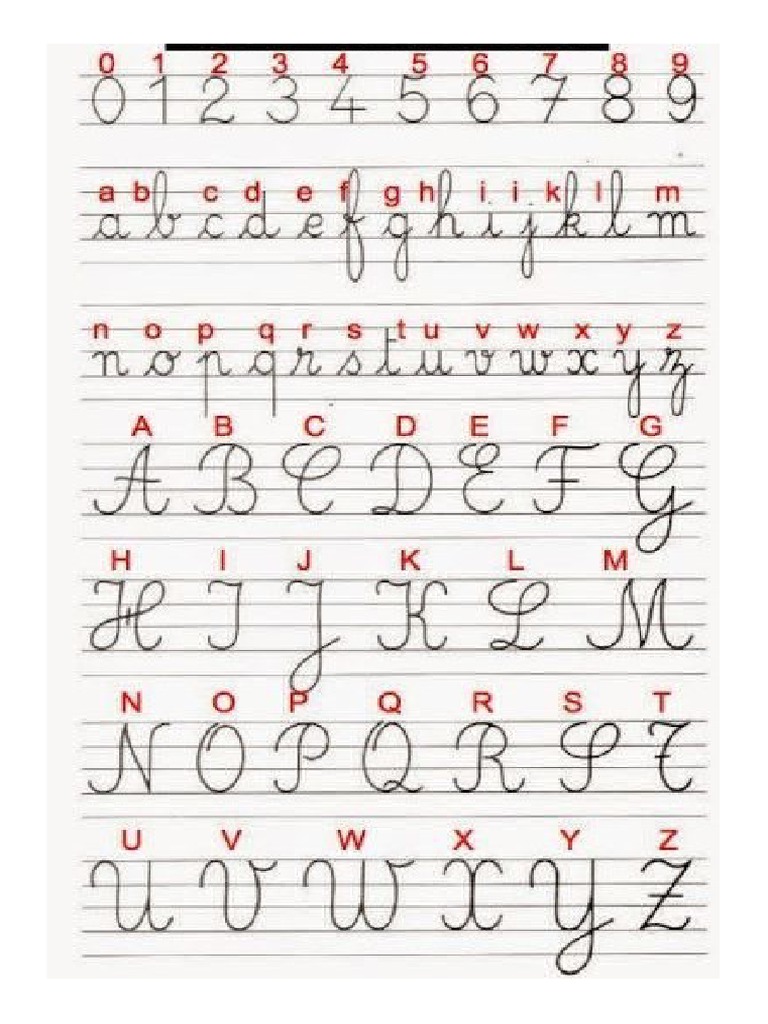 0 1 2 3 4 5 6 7 8 9
0 1 2 3 4 5 6 7 8 9
a b c d e f g h i i k l m
a b c d e f g h i j k l m
n o p q r s t u v w x y z
n o p q r s t u v w x y z
A B C D E F G
A B C D E F G
H I J K L M
H I J K L M
N O P Q R S T
N O P Q R S T
U V W X Y Z
U V W X Y Z